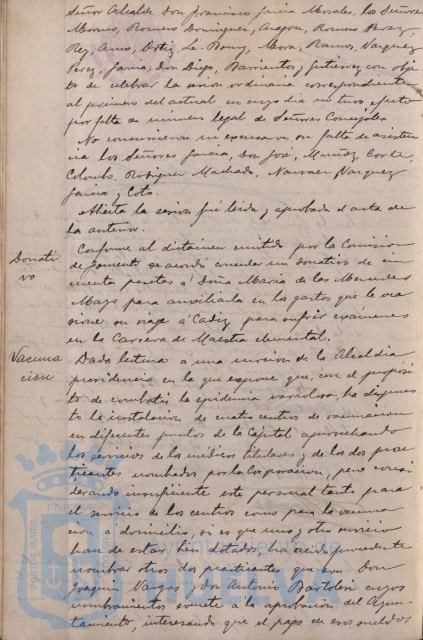 Señor Alcalde Don Francisco García Morales, los Señores
Moreno, Romero Domínguez, Aragón, Romero Pérez,
Rey, Amo, Ortiz, Le-Bourg, Mora, Ramos, Vazquez
Perez, García, Don Diego, Barrientos y Gutierrez con obje
to de celebrar la sesion ordinaria correspondiente
al primero del actual en cuyo dia no tuvo efecto
por falta de número legal de Señores Concejales
No concurrieron ni excusaron su falta de asisten
cia los Señores García, Don José, Muñoz, Corte,
Colombo, Rodriguez Machado, Vazquez
García y Coto.
Abierta la sesion fué leida y aprobada el acta de
la anterior.
Donati
vo
Conforme al dictamen emitido por la Comision
de fomento se acordó conceder un donativo de cin
cuenta pesetas á Doña María de las Mercedes
Mazo para auxiliarla en los gastos que le oca
sione su viaje á Cadiz para sufrir exámenes
en la Carrera de Maestra elemental.
Vacuna
cion
Dada lectura á una mocion de la Alcaldia
presidencia en la que expone que, con el proposi
to de combatir la epidemia variolosa, ha dispues
to la instalacion de cuatro centros de vacunacion
en diferentes puntos de la Capital aprovechando
los servicios de los médicos titulares y de los dos prac
ticantes nombrados por la Corporacion, pero consi
derando insuficiente este personal tanto para
el servicio de los centros como para la vacuna
cion á domicilio, si es que uno y otro servicio
han de estar bien dotados, ha creido procedente
nombrar otros dos practicantes que son Don
Joaquin Vargas y Don Antonio Bartolesi cuyos
nombramientos somete á la aprobacion del Ayun-
tamiento, interesando que el pago de esos sueldos